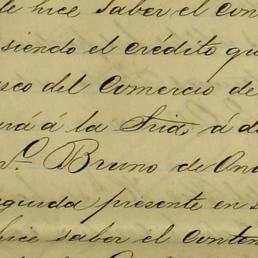 de hice saber el con
siendo el crédito qu
sco del Comercio de
ará á la Srid. á d
n.º Bruno de Ona
eguida presente en s
hice saber el conten